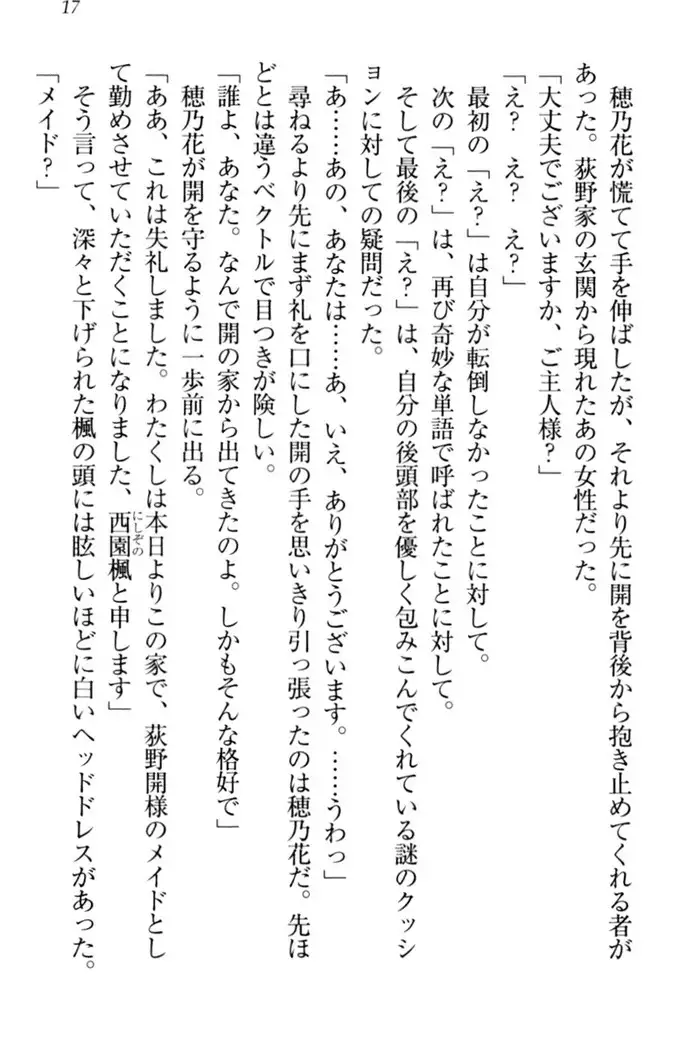 17
穂乃花が慌てて手を伸ばしたが、それより先に開を背後から抱き止めてくれる者が
あった。荻野家の玄関から現れたあの女性だった。
「大丈夫でございますか、ご主人様？」
「え？　え？　え？」
最初の「え？」は自分が転倒しなかったことに対して。
次の「え？」は、再び奇妙な単語で呼ばれたことに対して。
そして最後の「え？」は、自分の後頭部を優しく包みこんでくれている謎のクッシ
ョンに対しての疑問だった。
「あ……あの、あなたは……あ、いえ、ありがとうございます。……うわっ」
尋ねるより先にまず礼を口にした開の手を思いきり引っ張ったのは穂乃花だ。先ほ
どとは違うベクトルで目つきが険しい。
「誰よ、あなた。なんで開の家から出てきたのよ。しかもそんな格好で」
穂乃花が開を守るように一歩前に出る。
「ああ、これは失礼しました。わたくしは本日よりこの家で、荻野開様のメイドとし
て勤めさせていただくことになりました、西園楓と申します」
にしぞの
そう言って、深々と下げられた楓の頭には眩しいほどに白いヘッドドレスがあった。
「メイド？」